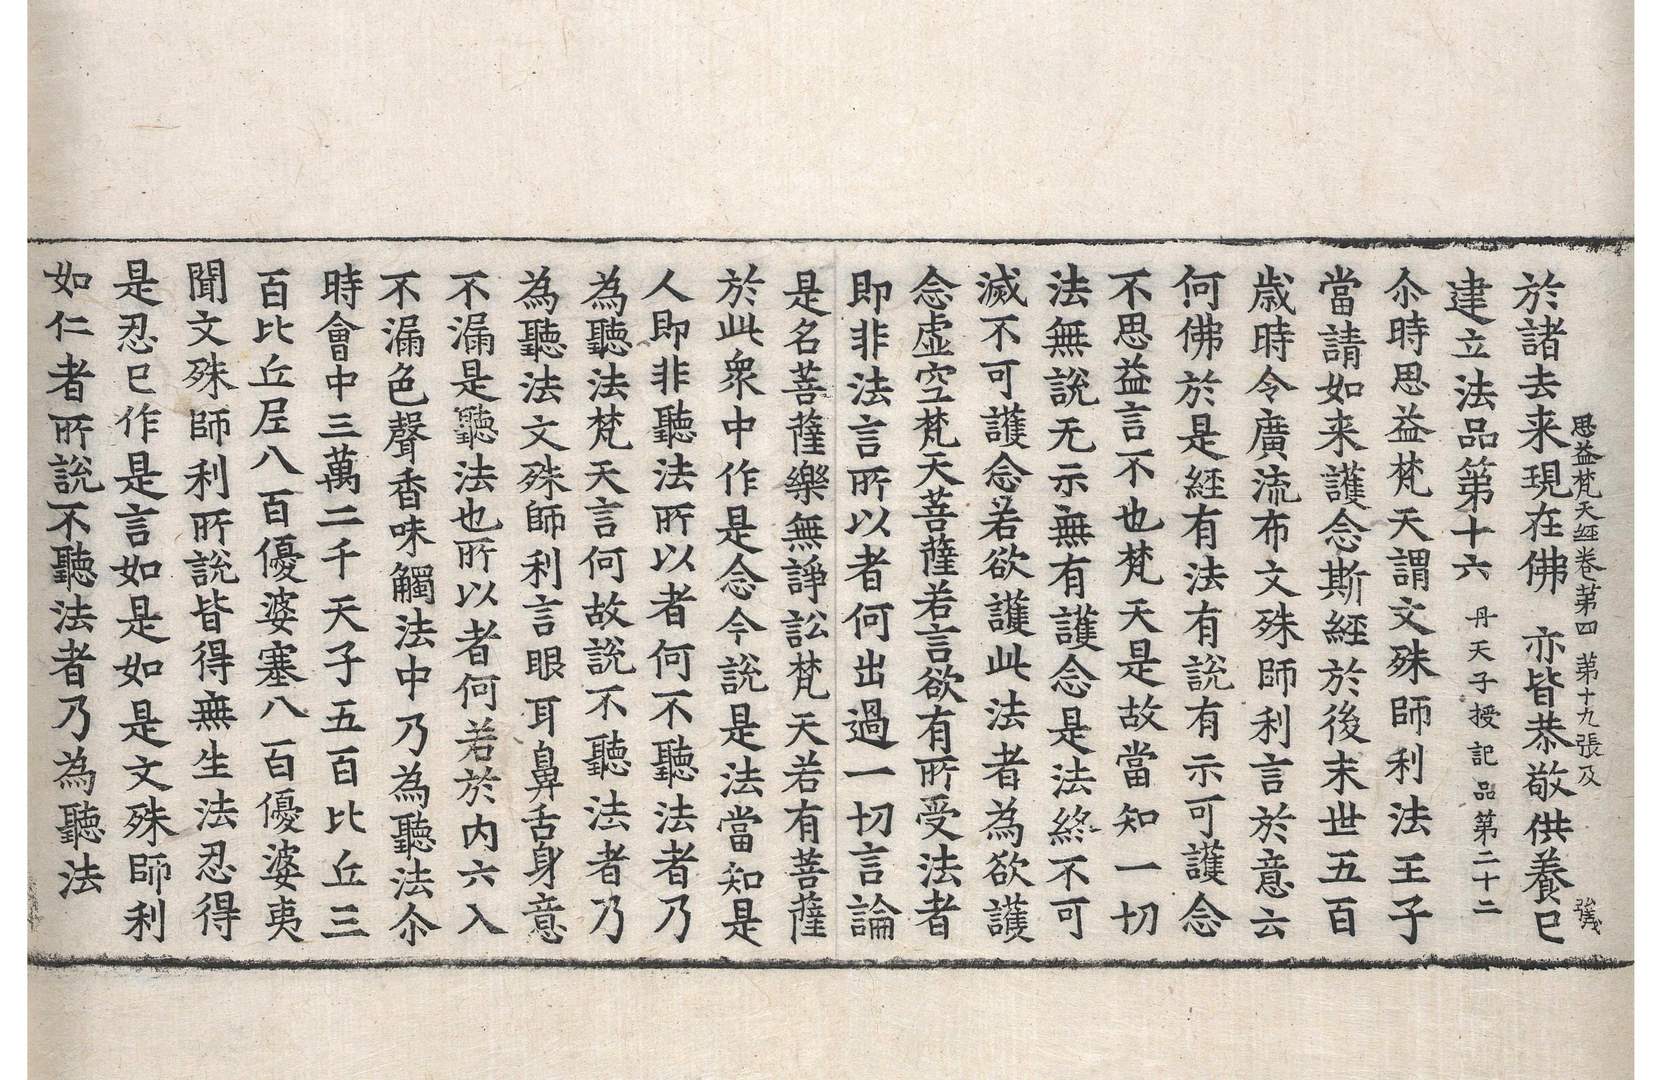 思益梵天經卷第四 第十九張 及
於諸去来現在佛 亦皆恭敬供養已
建立法品第十六 丹天子授記品第二十二
尒時思益梵天謂文殊師利法王子
當請如来護念斯經於後末世五百
歲時令廣流布文殊師利言於意云
何佛於是經有法有說有示可護念
不思益言不也梵天是故當知一切
法無說无示無有護念是法終不可
滅不可護念若欲護此法者為欲護
念虛空梵天菩薩若言欲有所受法者
即非法言所以者何出過一切言論
是名菩薩樂無諍訟梵天若有菩薩
於此衆中作是念今說是法當知是
人即非聽法所以者何不聽法者乃
為聽法梵天言何故說不聽法者乃
為聽法文殊師利言眼耳鼻舌身意
不漏是聽法也所以者何若於內六入
不漏色聲香味觸法中乃為聽法尒
時會中三萬二千天子五百比丘三
百比丘尼八百優婆塞八百優婆夷
聞文殊師利所說皆得無生法忍得
是忍已作是言如是如是文殊師利
如仁者所說不聽法者乃為聽法